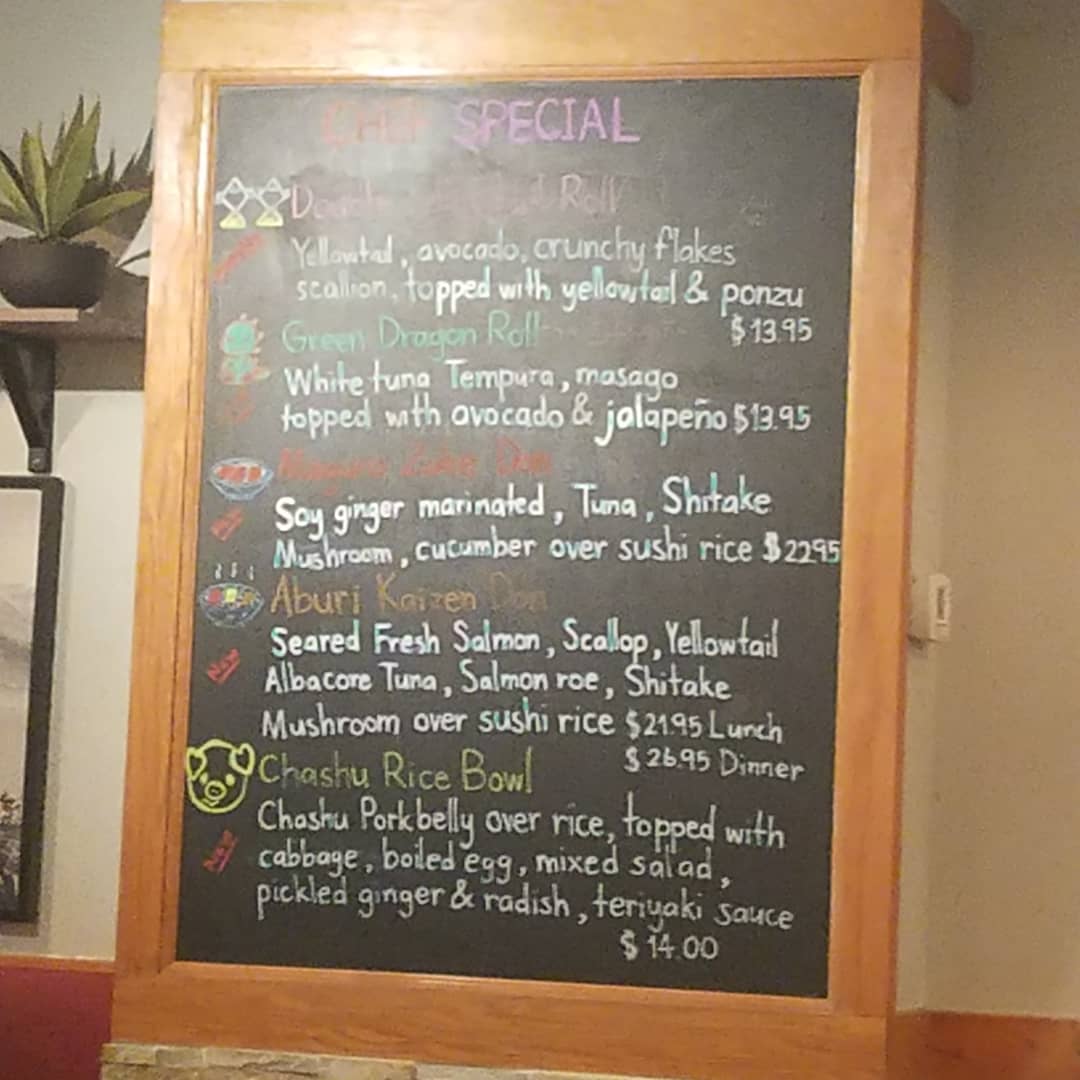 CHEF SPECIAL
Roll
Yellowtail, avocado, crunchy flakes
scallion, topped with yellowtail & ponzu
Green Dragon Roll $13.95
White tuna Tempura, masago
topped with avocado & jalapeño $13.95
Don
Soy ginger marinated, Tuna, Shitake
Mushroom, cucumber over sushi rice $22.95
Aburi Kaizen Don
New
Seared Fresh Salmon, Scallop, Yellowtail
Albacore Tuna, Salmon roe, Shitake
Mushroom over sushi rice $21.95 Lunch
$26.95 Dinner
Chashu Rice Bowl
New
Chashu Porkbelly over rice, topped with
cabbage, boiled egg, mixed salad,
pickled ginger & radish, teriyaki sauce
$14.00